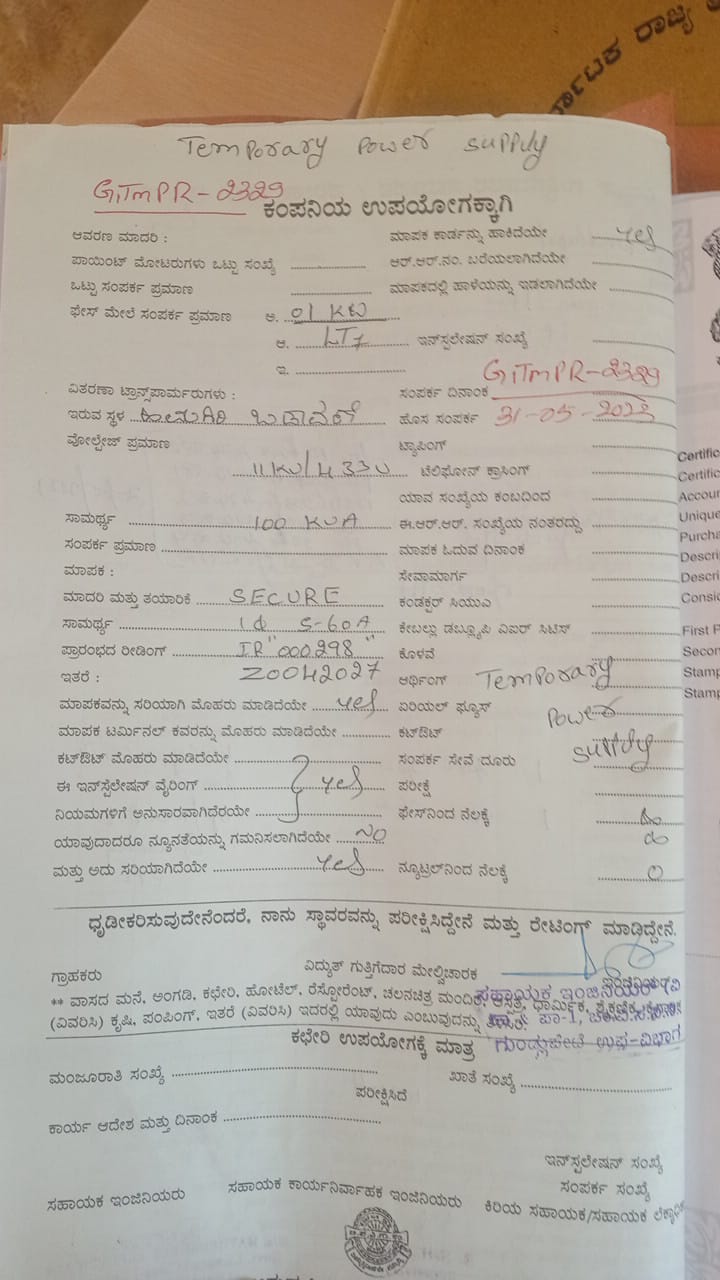 ರ್ನಾಟಕ ರಾಜ್ಯ
Temporary Power Supply
GTMPR-2329
ಕಂಪನಿಯ ಉಪಯೋಗಕ್ಕಾಗಿ
ಆವರಣ ಮಾದರಿ : ಮಾಪಕ ಕಾರ್ಡನ್ನು ಹಾಕಿದೆಯೇ yes
ಪಾಯಿಂಟ್ ಮೋಟರುಗಳು ಒಟ್ಟು ಸಂಖ್ಯೆ ಆರ್.ಆರ್.ನಂ. ಬರೆಯಲಾಗಿದೆಯೇ
ಒಟ್ಟು ಸಂಪರ್ಕ ಪ್ರಮಾಣ ಮಾಪಕದಲ್ಲಿ ಹಾಳೆಯನ್ನು ಇಡಲಾಗಿದೆಯೇ
ಫೇಸ್ ಮೇಲೆ ಸಂಪರ್ಕ ಪ್ರಮಾಣ ಅ. 01 KW
ಆ. LT7 ಇನ್‌ಸ್ಟಲೇಷನ್ ಸಂಖ್ಯೆ
ಇ. GTMPR-2329
ವಿತರಣಾ ಟ್ರಾನ್ಸ್‌ಫಾರ್ಮರುಗಳು : ಸಂಪರ್ಕ ದಿನಾಂಕ
ಇರುವ ಸ್ಥಳ ಬಡಾವಣೆ ಹೊಸ ಸಂಪರ್ಕ 31-05-2023
ವೋಲ್ಟೇಜ್ ಪ್ರಮಾಣ ಟ್ಯಾಪಿಂಗ್
11KV/433V ಟೆಲಿಫೋನ್ ಕ್ರಾಸಿಂಗ್
ಯಾವ ಸಂಖ್ಯೆಯ ಕಂಬದಿಂದ
ಸಾಮರ್ಥ್ಯ 100 KVA ಈ.ಆರ್.ಆರ್. ಸಂಖ್ಯೆಯ ನಂತರದ್ದು
ಸಂಪರ್ಕ ಪ್ರಮಾಣ ಮಾಪಕ ಓದುವ ದಿನಾಂಕ
ಮಾಪಕ : ಸೇವಾಮಾರ್ಗ
ಮಾದರಿ ಮತ್ತು ತಯಾರಿಕೆ SECURE ಕಂಡಕ್ಟರ್ ಸಿಯುಎ
ಸಾಮರ್ಥ್ಯ 1φ 5-60A ಕೇಬಲ್ಲು ಡಬ್ಲ್ಯೂಪಿ ವಿಐರ್ ಸಿಟಿಸ್
ಪ್ರಾರಂಭದ ರೀಡಿಂಗ್ IR "000298" ಕೊಳವೆ
ಇತರೆ : Z0042027 ಅರ್ಥಿಂಗ್ Temporary
ಮಾಪಕವನ್ನು ಸರಿಯಾಗಿ ಮೊಹರು ಮಾಡಿದೆಯೇ yes ಏರಿಯಲ್ ಫ್ಯೂಸ್ Power
ಮಾಪಕ ಟರ್ಮಿನಲ್ ಕವರನ್ನು ಮೊಹರು ಮಾಡಿದೆಯೇ ಕಟ್‌ಔಟ್
ಕಟ್‌ಔಟ್ ಮೊಹರು ಮಾಡಿದೆಯೇ ಸಂಪರ್ಕ ಸೇವೆ ದೂರು Supply
ಈ ಇನ್‌ಸ್ಟಲೇಷನ್ ವೈರಿಂಗ್ yes ಪರೀಕ್ಷೆ
ನಿಯಮಗಳಿಗೆ ಅನುಸಾರವಾಗಿದೆರಯೇ ಫೇಸ್‌ನಿಂದ ನೆಲಕ್ಕೆ
ಯಾವುದಾದರೂ ನ್ಯೂನತೆಯನ್ನು ಗಮನಿಸಲಾಗಿದೆಯೇ NO
ಮತ್ತು ಅದು ಸರಿಯಾಗಿದೆಯೇ yes ನ್ಯೂಟ್ರಲ್‌ನಿಂದ ನೆಲಕ್ಕೆ 0
ಧೃಡೀಕರಿಸುವುದೇನೆಂದರೆ, ನಾನು ಸ್ಥಾವರವನ್ನು ಪರೀಕ್ಷಿಸಿದ್ದೇನೆ ಮತ್ತು ರೇಟಿಂಗ್ ಮಾಡಿದ್ದೇನೆ.
ಗ್ರಾಹಕರು ವಿದ್ಯುತ್ ಗುತ್ತಿಗೆದಾರ ಮೇಲ್ವಿಚಾರಕ
** ವಾಸದ ಮನೆ, ಅಂಗಡಿ, ಕಛೇರಿ, ಹೋಟೆಲ್, ರೆಸ್ಟೋರೆಂಟ್, ಚಲನಚಿತ್ರ ಮಂದಿರ, ಆಸ್ಪತ್ರೆ, ಧಾರ್ಮಿಕ, ಶೈಕ್ಷಣಿಕ,
(ವಿವರಿಸಿ) ಕೃಷಿ, ಪಂಪಿಂಗ್, ಇತರೆ (ವಿವರಿಸಿ) ಇದರಲ್ಲಿ ಯಾವುದು ಎಂಬುವುದನ್ನು ತಿಳಿಸಿರಿ.
ಸಹಾಯಕ ಇಂಜಿನಿಯರ್
ಗುಂಡ್ಲುಪೇಟೆ ಉಪ-ವಿಭಾಗ
ಕಛೇರಿ ಉಪಯೋಗಕ್ಕೆ ಮಾತ್ರ
ಮಂಜೂರಾತಿ ಸಂಖ್ಯೆ ಖಾತೆ ಸಂಖ್ಯೆ
ಪರೀಕ್ಷಿಸಿದೆ
ಕಾರ್ಯ ಆದೇಶ ಮತ್ತು ದಿನಾಂಕ
ಇನ್‌ಸ್ಟಲೇಷನ್ ಸಂಖ್ಯೆ
ಸಂಪರ್ಕ ಸಂಖ್ಯೆ
ಸಹಾಯಕ ಇಂಜಿನಿಯರು ಸಹಾಯಕ ಕಾರ್ಯನಿರ್ವಾಹಕ ಇಂಜಿನಿಯರು ಕಿರಿಯ ಸಹಾಯಕ/ಸಹಾಯಕ
Certific
Certific
Accour
Unique
Purcha
Descri
Descri
Consid
First P
Secon
Stamp
Stamp